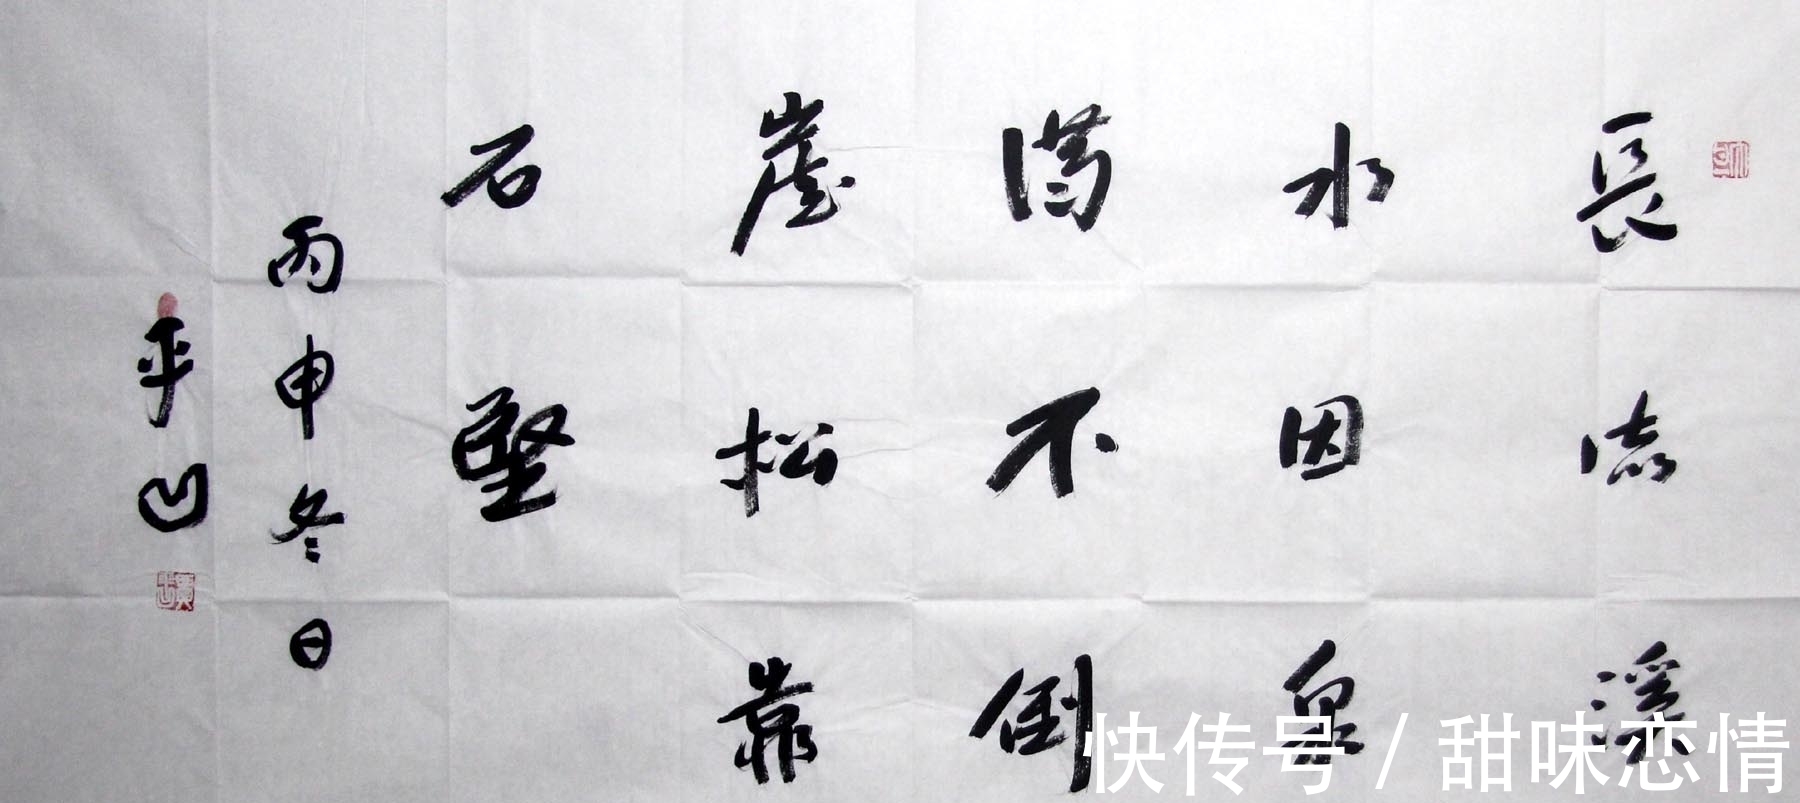 長流溪
水因泉
满不倒
崖松靠
石堅
丙申冬日
平凹
快传号 / 甜味恋情